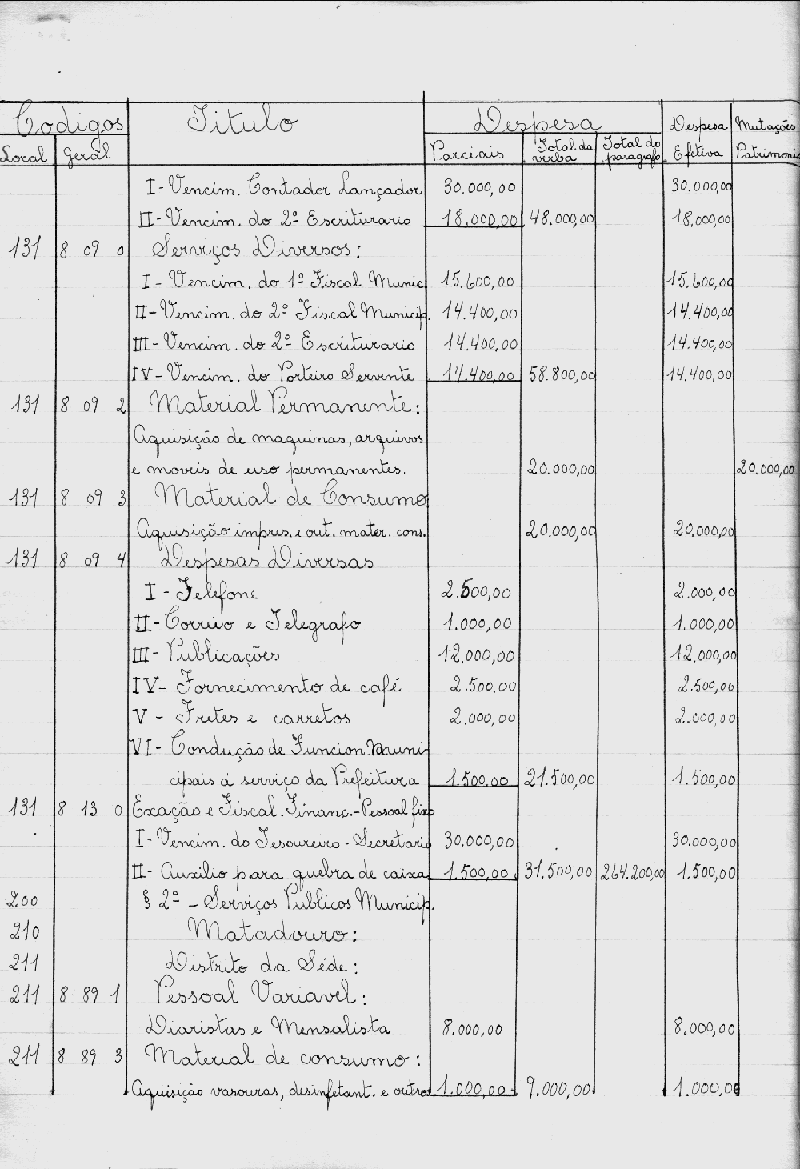 Codigos Titulo Despesa Despesa Mutações
Local Geral Parciais Total da verba Total do paragrafo Efetiva Patrimoni
I - Vencim. Contador Lançador 30.000,00 30.000,00
II - Vencim. do 2º Escriturario 18.000,00 48.000,00 18.000,00
131 8 09 0 Serviços Diversos:
I - Vencim. do 1º Fiscal Munic. 15.600,00 15.600,00
II - Vencim. do 2º Fiscal Municip. 14.400,00 14.400,00
III - Vencim. do 2º Escriturario 14.400,00 14.400,00
IV - Vencim. do Porteiro Servente 14.400,00 58.800,00 14.400,00
131 8 09 2 Material Permanente:
Aquisição de maquinas, arquivos
e moveis de uso permanentes. 20.000,00 20.000,00
131 8 09 3 Material de Consumo
Aquisição impres. e out. mater. cons. 20.000,00 20.000,00
131 8 09 4 Despesas Diversas
I - Telefone 2.500,00 2.000,00
II - Correio e Telegrafo 1.000,00 1.000,00
III - Publicações 12.000,00 12.000,00
IV - Fornecimento de café 2.500,00 2.500,00
V - Frites e carretos 2.000,00 2.000,00
VI - Condução de Funcion. Muni-
cipais á serviço da Prefeitura 1.500,00 21.500,00 1.500,00
131 8 13 0 Exação e Fiscal. Financ. - Pessoal fixo
I - Vencim. do Tesoureiro - Secretario 30.000,00 30.000,00
II - Auxilio para quebra de caixa 1.500,00 31.500,00 264.200,00 1.500,00
200 § 2º - Serviços Publicos Municip.
210 Matadouro:
211 Distrito da Séde:
211 8 89 1 Pessoal Variavel:
Diaristas e Mensalista 8.000,00 8.000,00
211 8 89 3 Material de consumo:
Aquisição vasouras, desinfetant. e outro 1.000,00 9.000,00 1.000,00